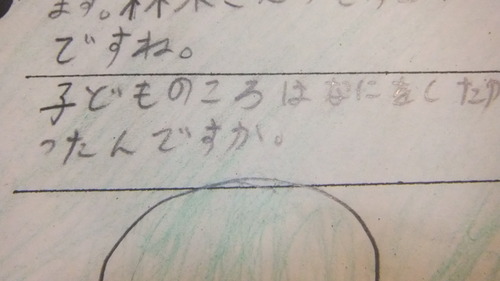 ます。
ですね。
子どものころはなにをしたか
ったんですか。